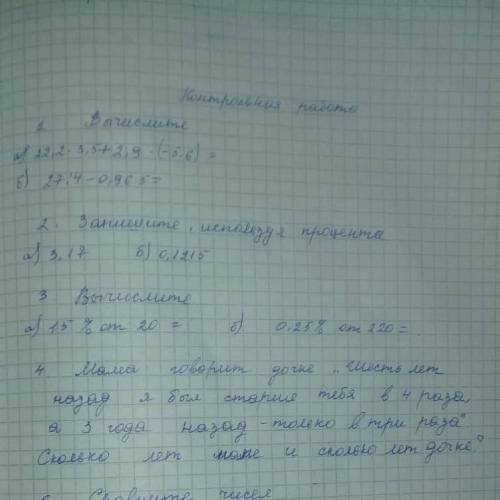 Контрольная работа
1 Вычислите
а) 22,2·3,5+2,9·(-5.6)=
б) 27:4-0,96.5=
2. Запишите, используя проценты
а) 3,17 б) 0,1215
3 Вычислите
а) 15% от 20 = б) 0.25% от 220=.
4 Мама говорит дочке „Шесть лет
назад я был старше тебя в 4 раза,
а 3 года назад - только в три раза"
Сколько лет маме и сколько лет дочке?
Сравните чисел